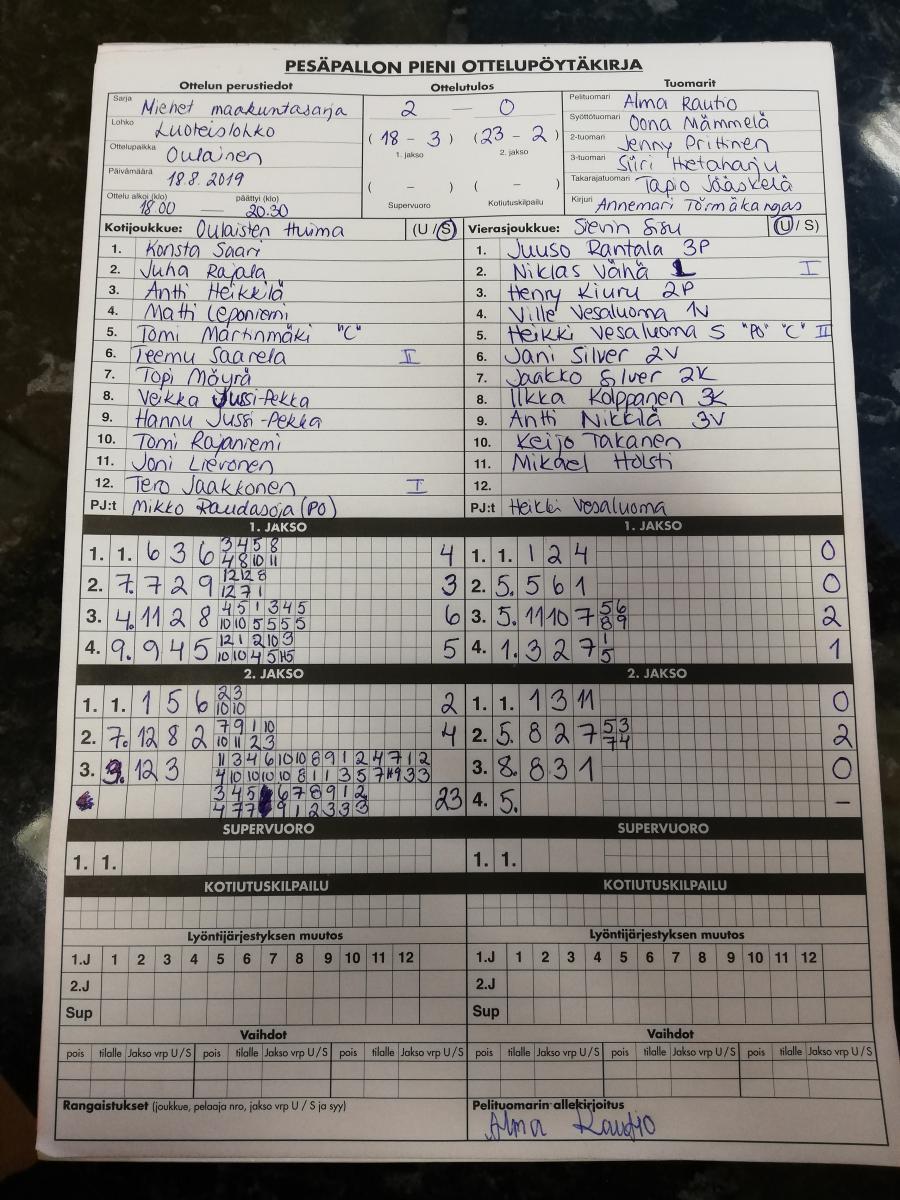 PESÄPALLON PIENI OTTELUPÖYTÄKIRJA
Ottelun perustiedot Ottelutulos Tuomarit
Sarja Miehet maakuntasarja
Lohko Luoteislohko
Ottelupaikka Oulainen
Päivämäärä 18.8.2019
Ottelu alkoi (klo) päättyi (klo)
18.00 — 20.30
2 — 0
( 18 - 3 ) (23 - 2 )
1. jakso 2. jakso
( - ) ( - )
Supervuoro Kotiutuskilpailu
Pelituomari Alma Rautio
Syöttötuomari Oona Mämmelä
2-tuomari Jenny Prittinen
3-tuomari Siiri Hietaharju
Takarajatuomari Tapio Jääskelä
Kirjuri Annemari Törmäkangas
Kotijoukkue: Oulaisten Huima (U / S)
1. Konsta Saari
2. Juha Rajala
3. Antti Heikkilä
4. Matti Leponiemi
5. Tomi Martinmäki "C"
6. Teemu Saarela II
7. Topi Möyrä
8. Veikka Jussi-Pekka
9. Hannu Jussi-Pekka
10. Tomi Rajaniemi
11. Joni Lievonen
12. Tero Jaakkonen I
PJ:t Mikko Raudasoja (PO)
Vierasjoukkue: Sievin Sisu (U / S)
1. Juuso Rantala 3P
2. Niklas Vähä L I
3. Henry Kiuru 2P
4. Ville Vesaluoma 1V
5. Heikki Vesaluoma S "PO" "C" II
6. Jani Silver 2V
7. Jaakko Silver 2K
8. Ilkka Kolppanen 3K
9. Antti Nikkilä 3V
10. Keijo Takanen
11. Mikael Holsti
12.
PJ:t Heikki Vesaluoma
1. JAKSO
1. 1. 6 3 6 3 4 5 8 4
4 8 10 11
2. 7. 7 2 9 12 12 8 3
12 7 1
3. 4. 11 2 8 4 5 1 3 4 5 6
10 10 5 5 5 5
4. 9. 9 4 5 12 1 2 10 3 5
10 10 4 5
1. JAKSO
1. 1. 1 2 4 0
2. 5. 5 6 1 0
3. 5. 11 10 7 5 6 2
8 9
4. 1. 3 2 7 1 1
5
2. JAKSO
1. 1. 1 5 6 2 3 2
10 10
2. 7. 12 8 2 7 9 1 10 4
10 11 2 3
3. 9. 12 3 11 3 4 6 10 10 8 9 1 2 4 7 1 2
4 10 10 10 10 8 1 1 3 5 7 9 3 3
3 4 5 6 7 8 9 1 2 23
4 7 7 9 1 2 3 3 3
2. JAKSO
1. 1. 1 3 11 0
2. 5. 8 2 7 5 3 2
7 4
3. 8. 8 3 1 0
4. 5. –
SUPERVUORO SUPERVUORO
1. 1. 1. 1.
KOTIUTUSKILPAILU KOTIUTUSKILPAILU
Lyöntijärjestyksen muutos Lyöntijärjestyksen muutos
1.J 1 2 3 4 5 6 7 8 9 10 11 12 1.J 1 2 3 4 5 6 7 8 9 10 11 12
2.J 2.J
Sup Sup
Vaihdot Vaihdot
pois tilalle Jakso vrp U / S pois tilalle Jakso vrp U / S pois tilalle Jakso vrp U / S pois tilalle Jakso vrp U / S pois tilalle Jakso vrp U / S pois tilalle Jakso vrp U / S
Rangaistukset (joukkue, pelaaja nro, jakso vrp U / S ja syy) Pelituomarin allekirjoitus
Alma Rautio